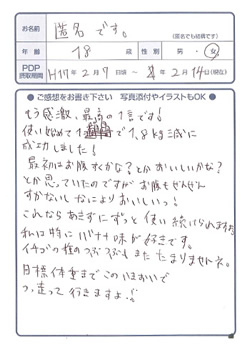 お名前 匿名です。
(匿名でも結構です)
年齢 18 歳 性別 男・女
PDP摂取期間 H17年2月7日頃 ~ 2月14日(現在)
● ご感想をお書き下さい 写真添付やイラストもOK ●
もう感激、最高の1言です!
使い始めて1週間で1,8kg減に
成功しました!
最初はお腹すくかな?とかおいしいかな?
とか思っていたのですがお腹もぜんぜん
すかないしなによりおいしいっ!
これならあきずにずっと使い続けられます
私は特にバナナ味が好きです。
イチゴの種のつぶつぶもまたたまりませんネ。
目標体重までこのいきおいで
つっ走って行きますよ!